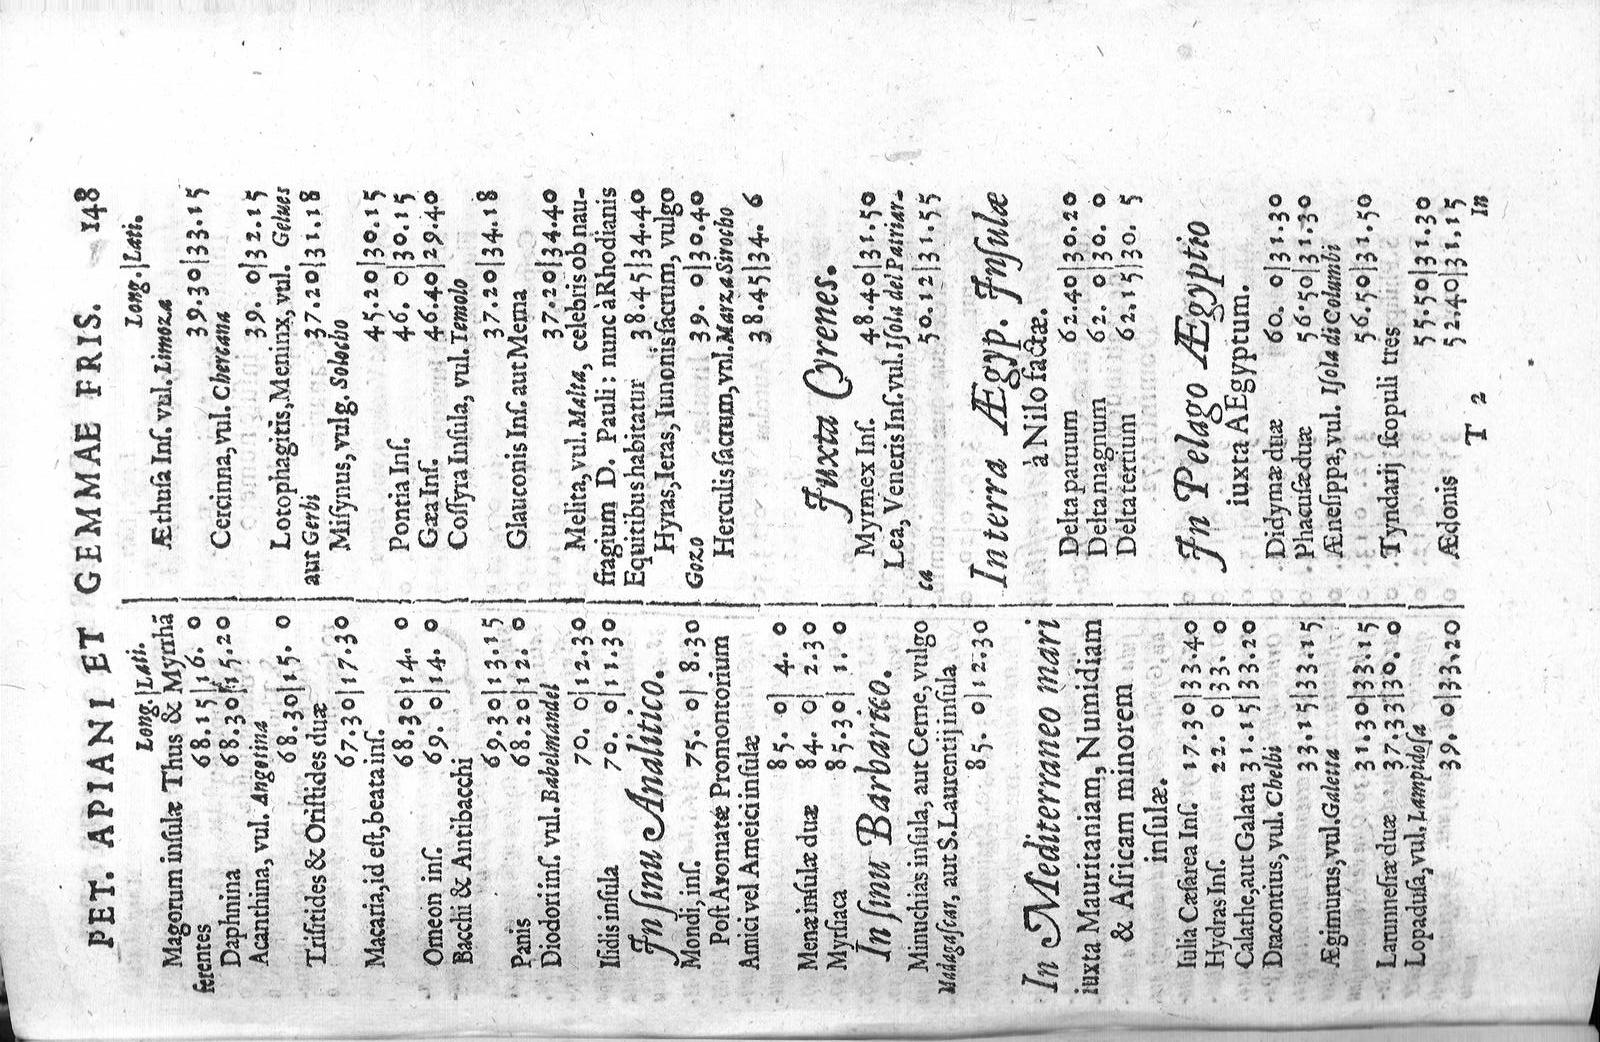 PET. APIANI ET GEMMAE FRIS. 148
Long.|Lati.
Magorum inſulæ Thus & Myrrhā
ferentes 68.15|16. 0
Daphnina 68.30|15.20
Acanthina, vul. Angotina
68.30|15. 0
Triſitides & Oriſtides duæ
67.30|17.30
Macaria, id eſt, beata inſ.
68.30|14. 0
Omeon inſ. 69. 0|14. 0
Bacchi & Antibacchi
69.30|13.15
Panis 68.20|12. 0
Diodori inſ. vul. Babelmandel
70. 0|12.30
Iſidis inſula 70. 0|11.30
In ſinu Analitico.
Mondi, inſ. 75. 0| 8.30
Poſt Aromatæ Promontorium
Amici vel Ameici inſulæ
85. 0| 4. 0
Menæ inſulæ duæ 84. 0| 2.30
Myrſiaca 85.30| 1. 0
In ſinu Barbarico.
Minuchias inſula, aut Cerne, vulgo
Madagaſcar, aut S. Laurentij inſula
85. 0|12.30
In Mediterraneo mari
iuxta Mauritaniam, Numidiam
& Africam minorem
inſulæ.
Iulia Cæſarea Inſ. 17.30|33.40
Hydras Inſ. 22. 0|33. 0
Calathe, aut Galata 31.15|33.20
Dracontius, vul. Chelbi
33.15|33.15
Ægimurus, vul. Galetta
31.30|33.15
Larunneſiæ duæ 37.33|30. 0
Lopaduſa, vul. Lampidoſa
39. 0|33.20
Long.|Lati.
Æthuſa Inſ. vul. Limoza
39.30|33.15
Cercinna, vul. Chercana
39. 0|32.15
Lotophagitis, Meninx, vul. Gelues
aut Gerbi 37.20|31.18
Miſynus, vulg. Solocho
45.20|30.15
Pontia Inſ. 46. 0|30.15
Gæa Inſ. 46.40|29.40
Coſſyra Inſula, vul. Temolo
37.20|34.18
Glauconis Inſ. aut Mema
37.20|34.40
Melita, vul. Malta, celebris ob nau-
fragium D. Pauli: nunc à Rhodianis
Equitibus habitatur 38.45|34.40
Hyras, Ieras, Iunonis ſacrum, vulgo
Gozo 39. 0|30.40
Herculis ſacrum, vul. Marza Sirocho
38.45|34. 6
Juxta Cyrenes.
Myrmex Inſ. 48.40|31.50
Lea, Veneris Inſ. vul. Iſola del Patriar-
ca 50.12|31.55
Interra Ægyp. Inſulæ
à Nilo factæ.
Delta paruum 62.40|30.20
Delta magnum 62. 0|30. 0
Delta tertium 62.15|30. 5
In Pelago Ægyptio
iuxta AEgyptum.
Didymæ duæ 60. 0|31.30
Phacuſæ duæ 56.50|31.30
Æneſippa, vul. Iſola di Colombi
56.50|31.50
Tyndarij ſcopuli tres
55.50|31.30
Ædonis 52.40|31.15
T 2 In